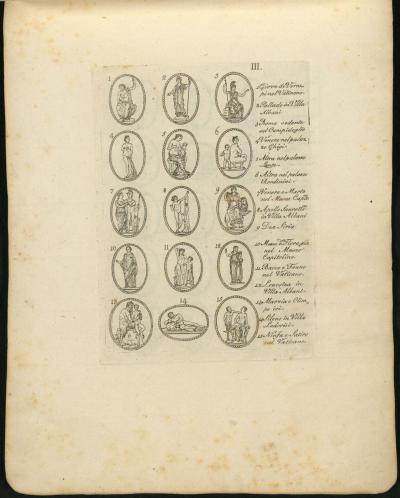 III.
1 2 3
4 5 6
7 8 9
10 11 12
13 14 15
1 Giove di Veros-
pi nel Vaticano.
2 Pallade in Villa
Albani
3 Roma sedente
nel Campidoglio
4 Venere nel palaz-
zo Ghigi.
5 Altra nel palazzo
6 Altra nel palazzo
7 Venere e Marte
nel Museo Capit.
8 Apollo Sauroctt.
in Villa Albani
9 Dea Siria
10
nel Museo
Capitolino.
11 Bacco e Fauno
nel Vaticano.
12 Leucotea in
Villa Albani.
13 Marsia e Olim-
po ivi.
14
Ludovisi.
15 Ninfa e Satiro
nel Vaticano